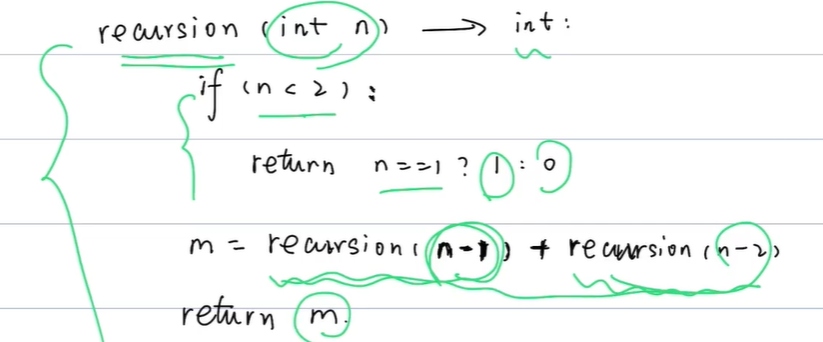 recursion (int n) → int :
if (n < 2) :
return n==1 ? 1 : 0
m = recursion (n-1) + recursion (n-2)
return m.